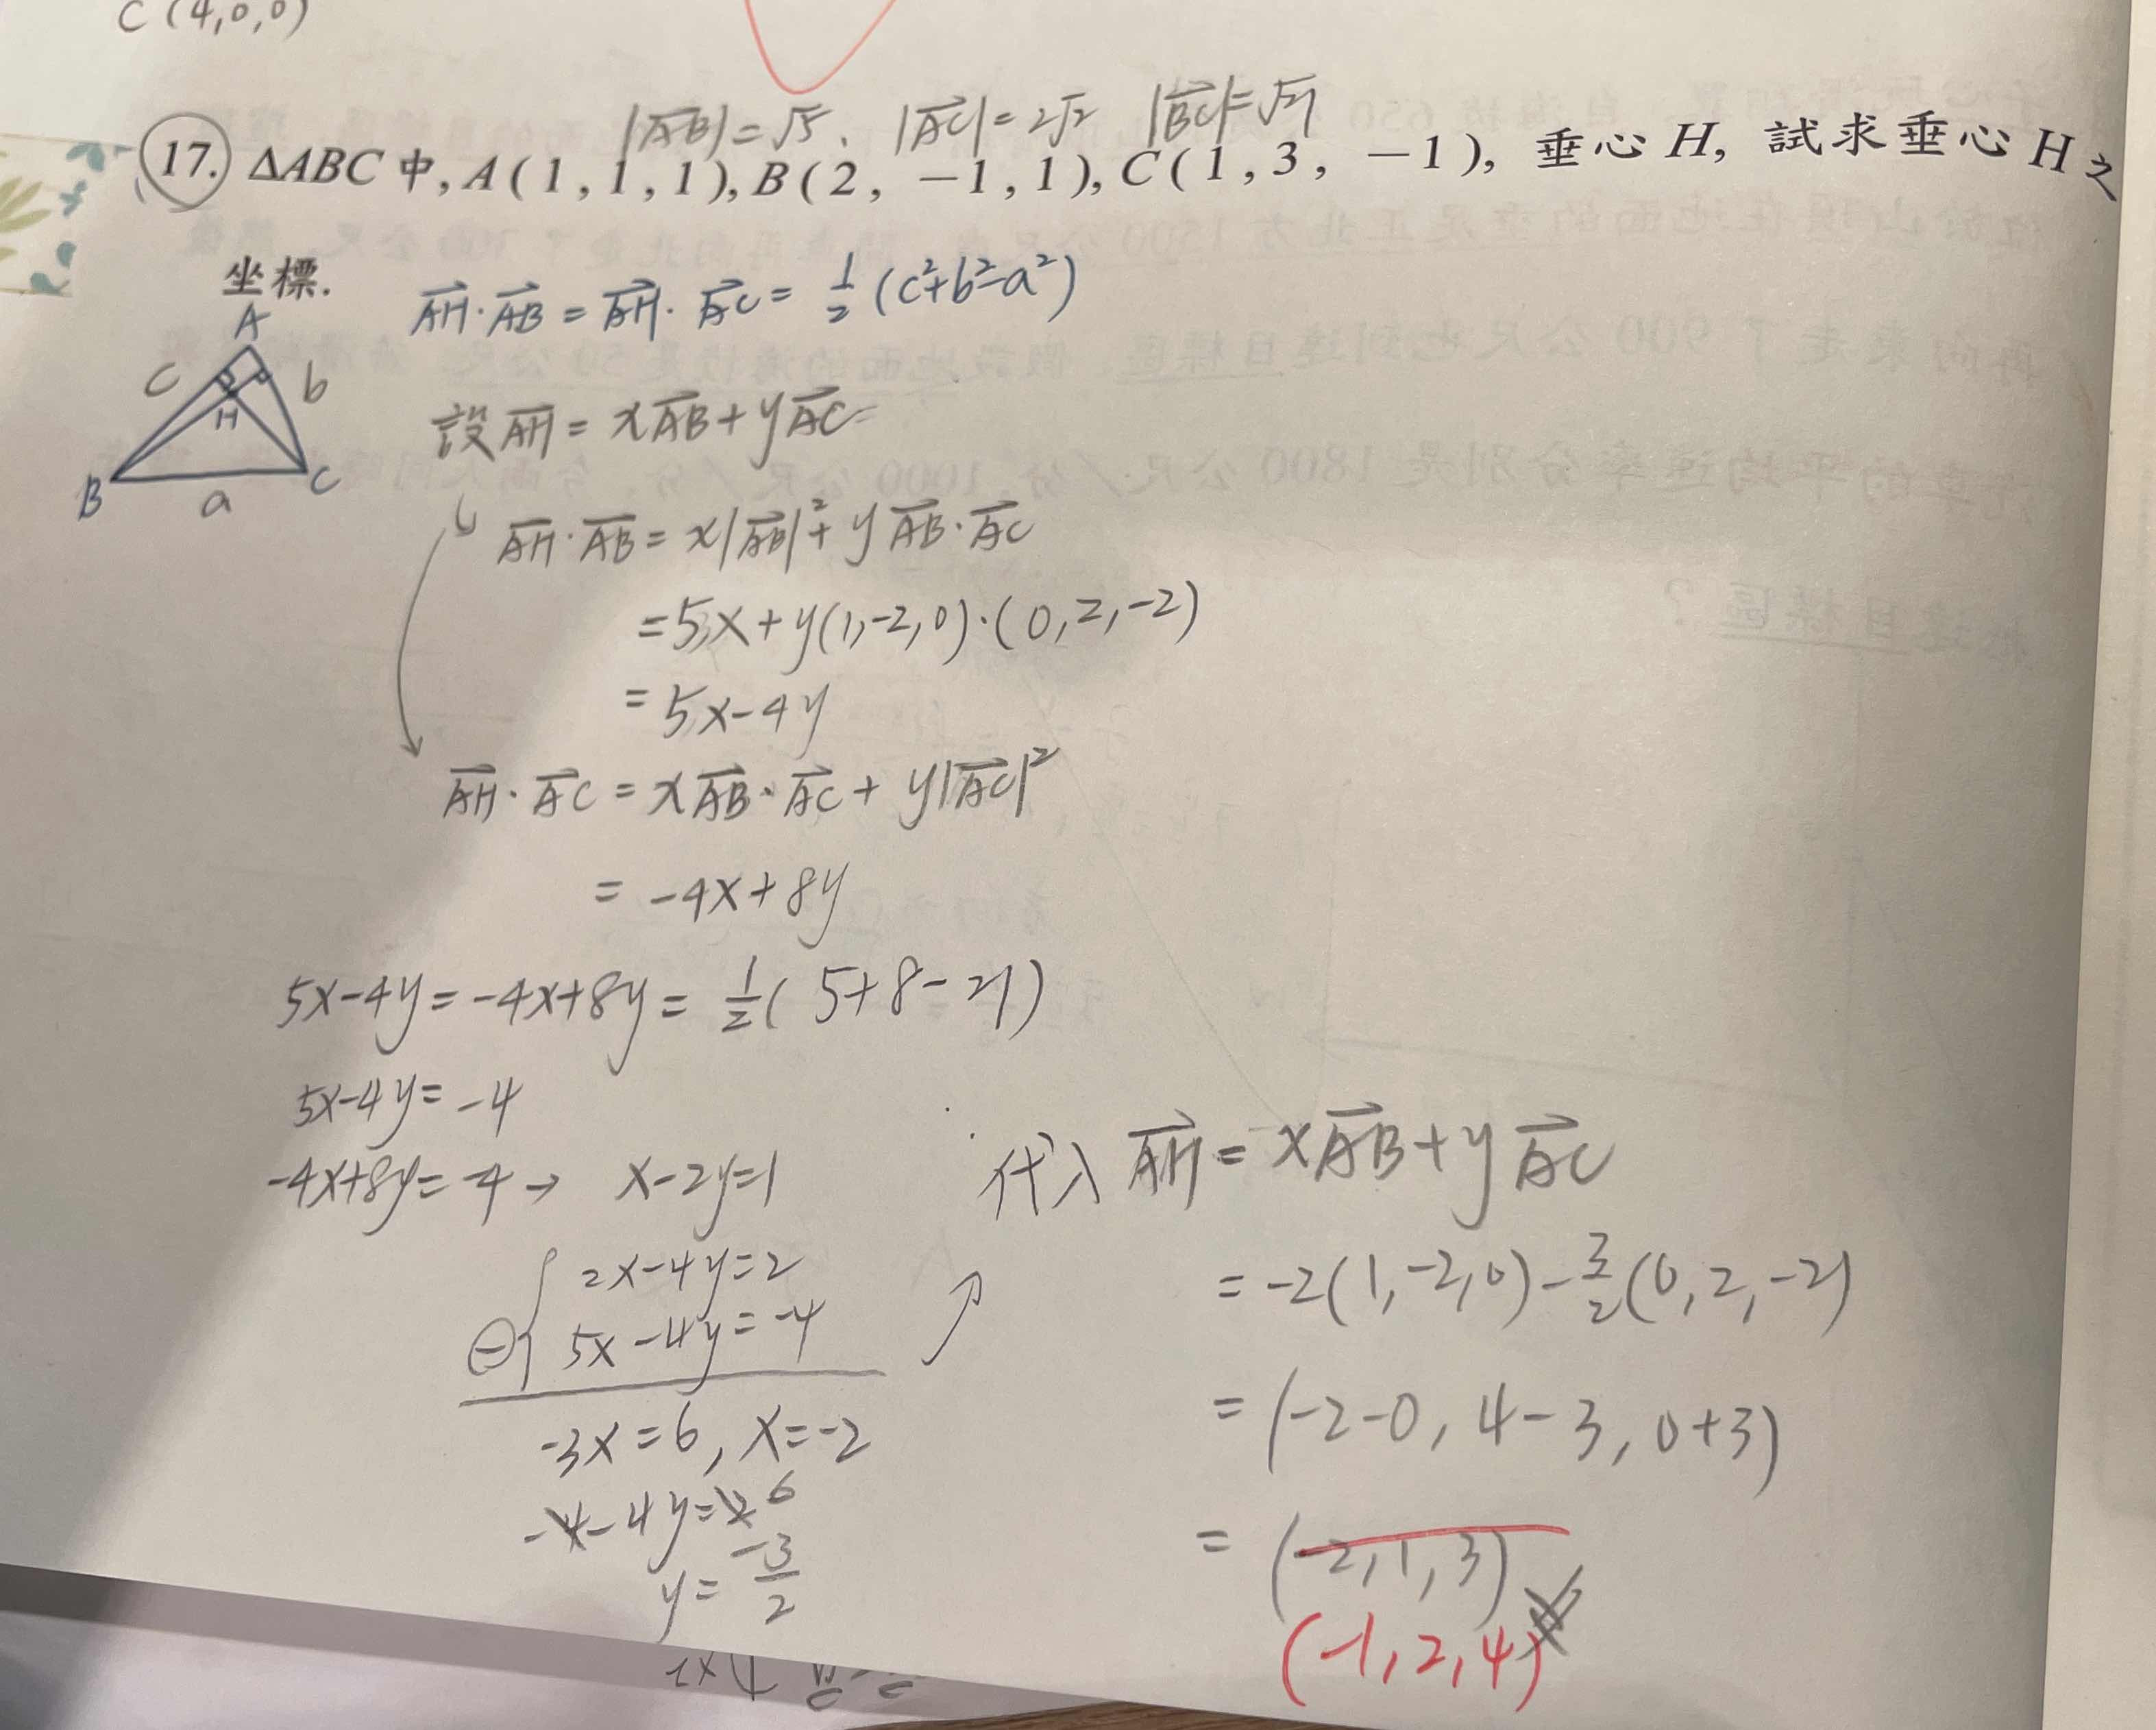 C(4,0,0)
|AB|=√5、 |AC|=2√2 |BC|=√21
17. ΔABC 中, A(1,1,1), B(2, −1,1), C(1,3, −1), 垂心 H, 試求垂心 H 之
坐標.
AH·AB = AH·AC = 1/2 (c²+b²-a²)
A
c b
H
B a C
設 AH = xAB + yAC
AH·AB = x|AB|² + yAB·AC
=5x+y(1,-2,0)·(0,2,-2)
=5x-4y
AH·AC = xAB·AC + y|AC|²
= -4x+8y
5x-4y=-4x+8y= 1/2(5+8-21)
5x-4y=-4
-4x+8y=-4 → x-2y=1
2x-4y=2
⊖ 5x-4y=-4
-3x=6, x=-2
-4-4y=2 6
y= -3/2
代入 AH = xAB + yAC
= -2(1,-2,0) - 3/2(0,2,-2)
= (-2-0, 4-3, 0+3)
= (-2,1,3)
(-1,2,4)